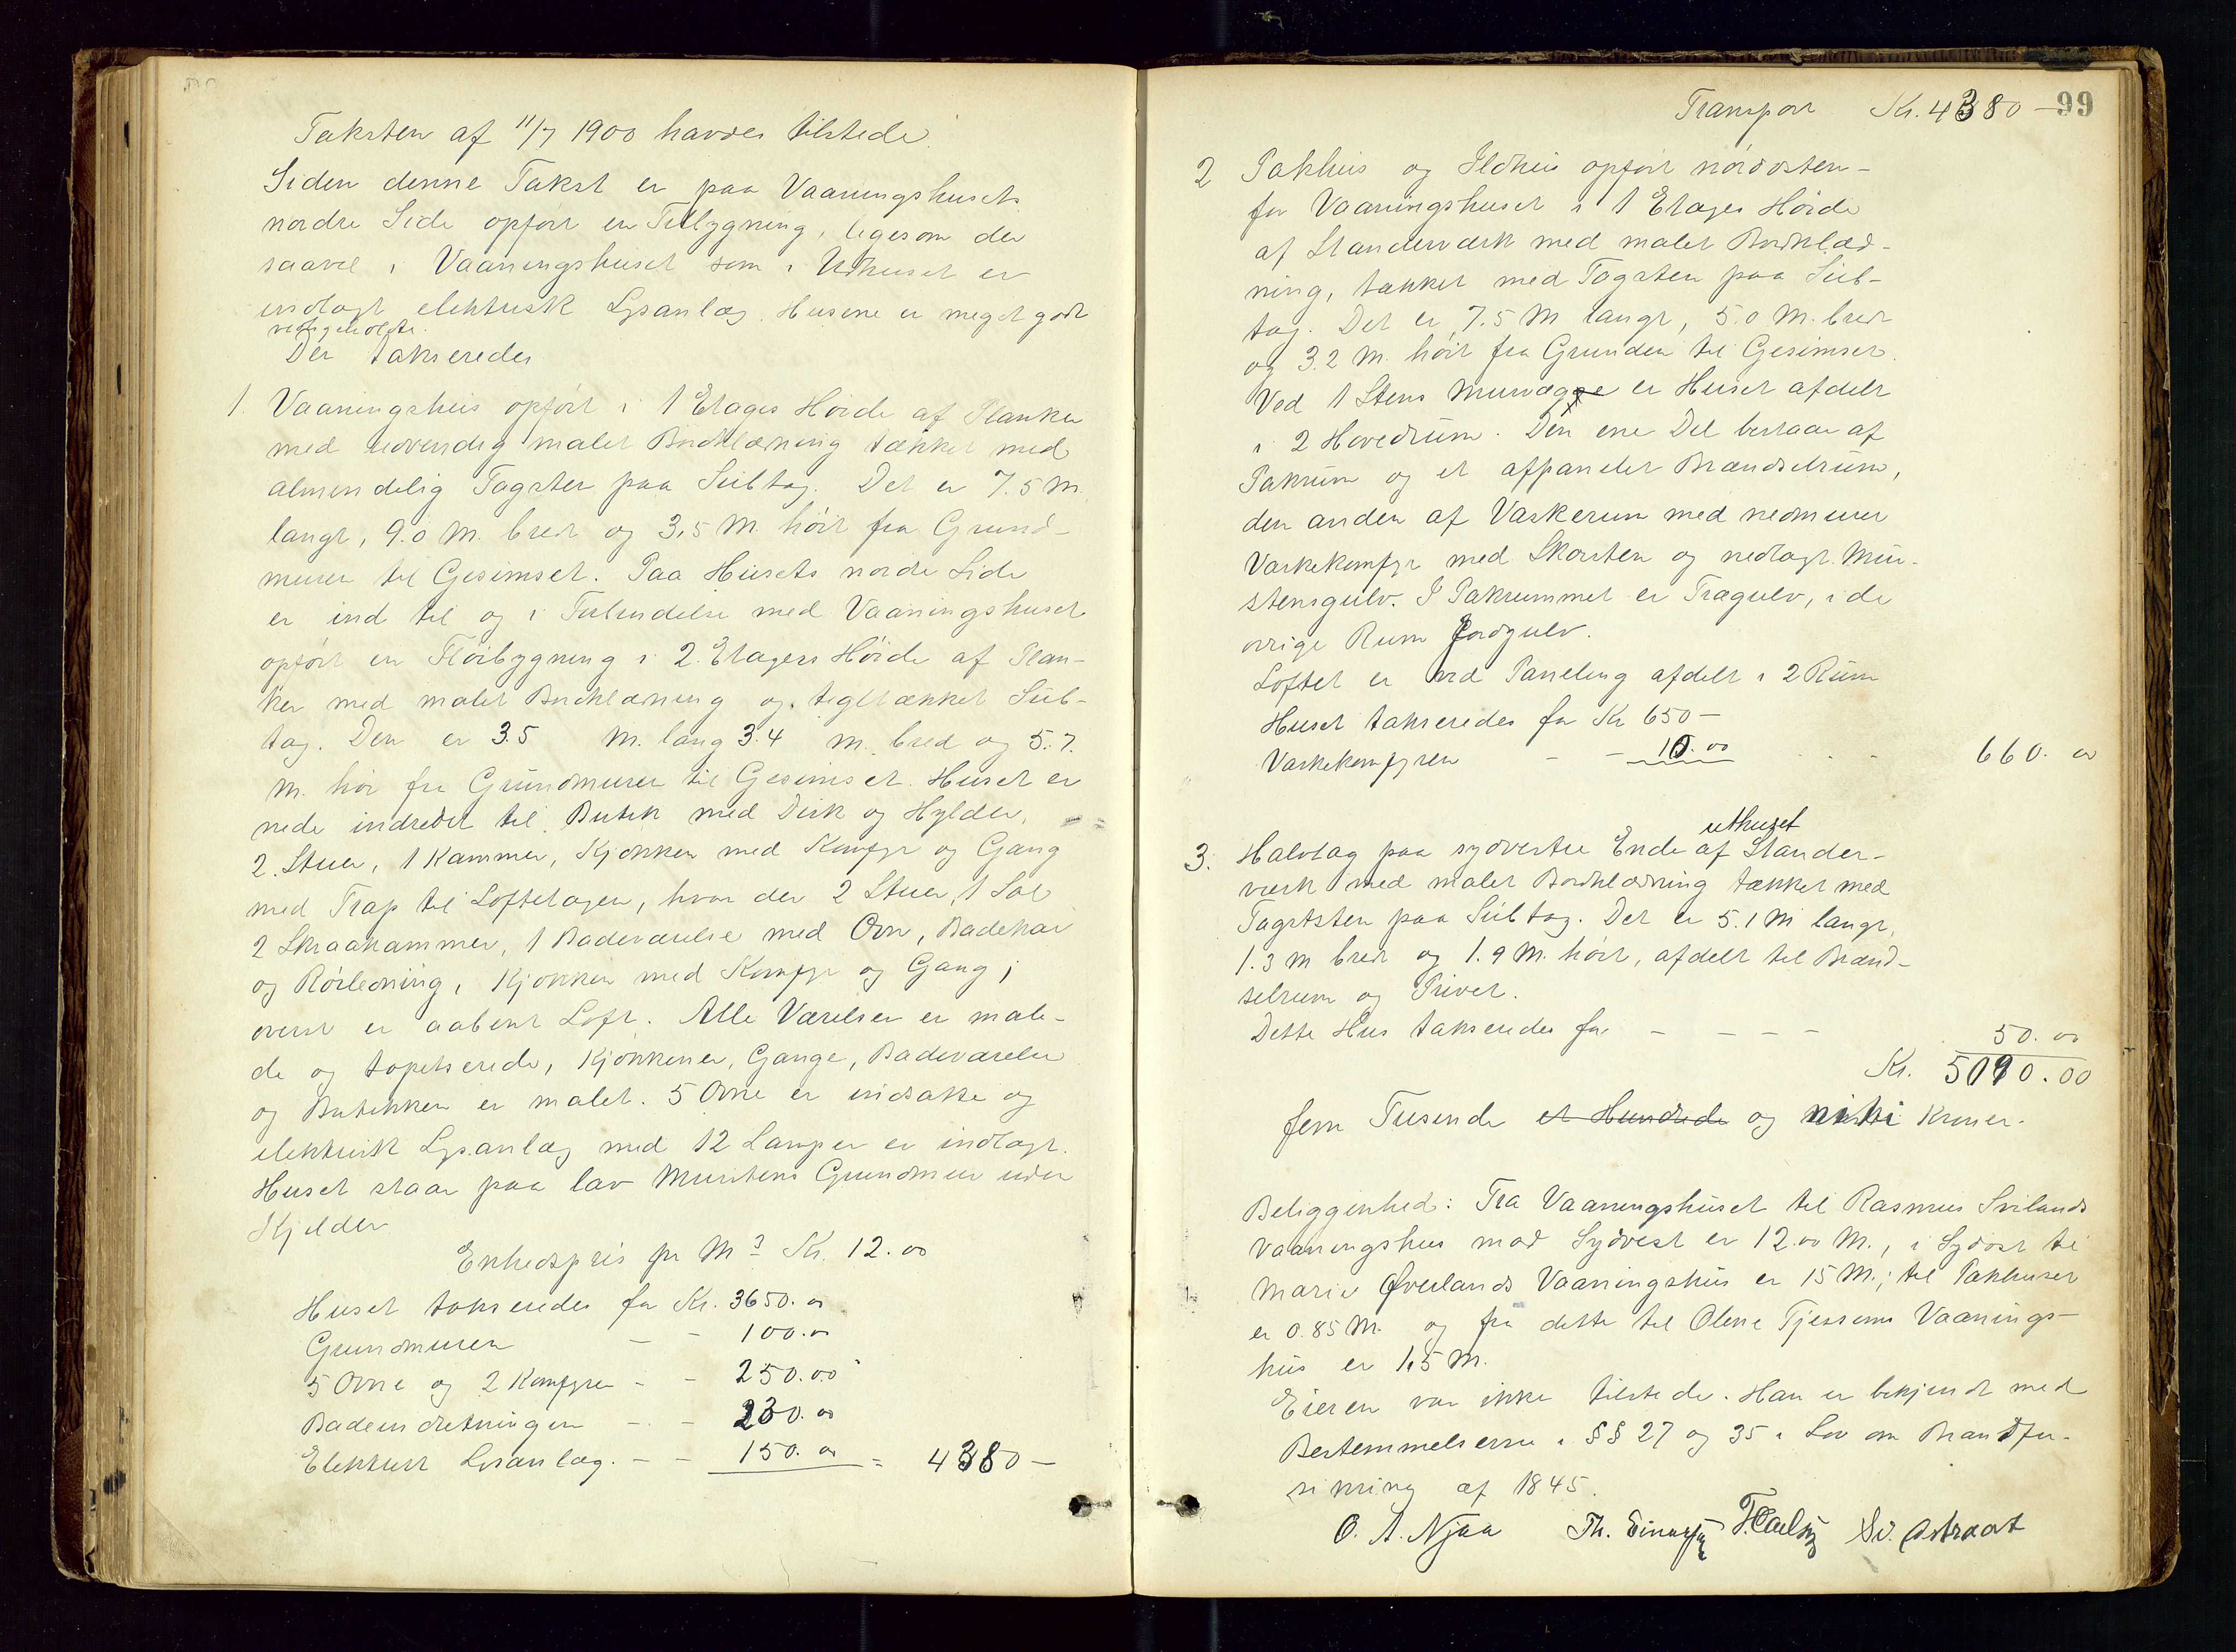 Taksten af 11/7 1900 havdes tilstede.
Siden denne Takst er paa Vaaningshusets
nordre Side opført en Tilbygning, ligesom der
saavel i Vaaningshuset som i Udhuset er
indlagt elektrisk Lysanlæg. Husene er meget godt
vedligeholdte.
Der takseredes
1. Vaaningshus opført i 1 Etages Høide af Planker
med udvendig malet Bordklædning tækket med
almindelig Tagsten paa Sutag. Det er 7.5 M.
langt, 9.0 M. bredt og 3,5 M. høit fra Grund-
muren til Gesimset. Paa Husets nordre Side
er ind til og i Forbindelse med Vaaningshuset
opført en Fløibygning i 2 Etagers Høide af Plan-
ker med malet Bordklædning og tegltækket Sub-
tag. Den er 3.5 M. lang 3.4 M. bred og 5.7.
M. høi fra Grundmuren til Gesimset. Huset er
nede indredet til Butik med Disk og Hylder,
2 Stuer, 1 Kammer, Kjøkken med Komfyr og Gang
med Trap til Loftetagen, hvor der 2 Stuer, 1 Sal
2 Skraakammer, 1 Badeværelse med Ovn, Badekar
og Rørledning, Kjøkken med Komfyr og Gang;
øverst er aabent Loft. Alle Værelser er male-
de og tapetserede, Kjøkkener, Gange, Badeværelse
og Butikken er malet. 5 Ovne er indsatte og
elektrisk Lysanlæg med 12 Lamper er indlagt.
Huset staar paa lav Murstens Grundmur uden
Kjelder
Enhedspris pr M3 Kr. 12.00
Huset takseredes for Kr. 3650.00
Grundmuren - - 100.00
5 Ovne og 2 Komfyrer - - 250.00
Badeindretningen - - 230.00
Elektrisk Lysanlæg. - - 150.00 = 4380 -
Transport Kr. 4380 - 99
2 Pakhus og Ildhus opført nordosten-
for Vaaningshuset i 1 Etages Høide
af Standerværk med malet Bordklæd-
ning, tækket med Tagsten paa Sub-
tag. Det er 7.5 M langt, 5.0 M. bredt
og 3.2 M. høit fra Grunden til Gesimset.
Ved 1 Stens Murvægge er Huset afdelt
i 2 Hovedrum. Den ene Del bestaar af
Pakrum og et afpanelet Brændselrum,
den anden af Vaskerum med nedmuret
Vaskekomfyr med Skorsten og nedlagt Mur-
stensgulv. I Pakrummet er Trægulv, i de
øvrige Rum Jordgulv.
Loftet er ved Paneling afdelt i 2 Rum
Huset takseredes for Kr 650 -
Vaskekomfyren - - 10.00 - - 660. 00
uthuset
3. Halvtag paa sydvestre Ende af Stander-
værk med malet Bordklædning tækket med
Tagsten paa Subtag. Det er 5.1 M langt,
1.3 M bredt og 1.9 M. høit, afdelt til Brænd-
selrum og Privet.
Dette Hus takseredes for - - - - 50.00
Kr. 5090.00
fem Tusende et Hundrede og nitti Kroner.
Beliggenhed: Fra Vaaningshuset til Rasmus Svilands
Vaaningshus mod Sydvest er 12.00 M., i Sydost til
Marie Øverlands Vaaningshus er 15 M.; til Pakhuset
er 0.85 M. og fra dette til Olene Tjessems Vaanings-
hus er 1,5 M.
Eieren var ikke tilstede. Han er bekjendt med
Bestemmelserne i §§ 27 og 35 i Lov om Brandfor-
sikring af 1845.
O. A. Njaa Th. Einarsen T. Carlsen Sv. Astraat